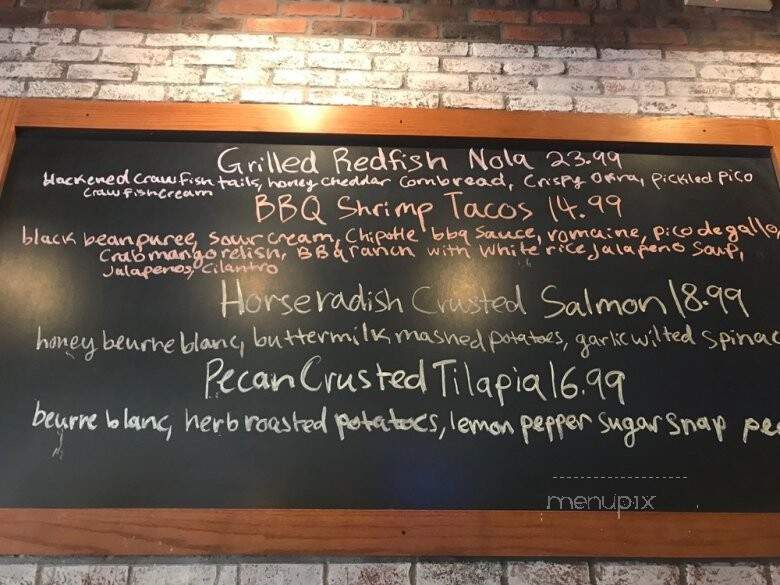 Grilled Redfish Nola 23.99
blackened crawfish tails, honey cheddar cornbread, Crispy Okra, pickled pico
crawfish cream
BBQ Shrimp Tacos 14.99
black bean puree, sour cream, Chipotle bbq sauce, romaine, pico de gallo,
Crab mango relish, BBQ ranch with white rice, Jalapeno Soup,
Jalapenos, Cilantro
Horseradish Crusted Salmon 18.99
honey beurre blanc, buttermilk mashed potatoes, garlic wilted spinac
Pecan Crusted Tilapia 16.99
beurre blanc, herb roasted potatoes, lemon pepper sugar snap pe
menupix